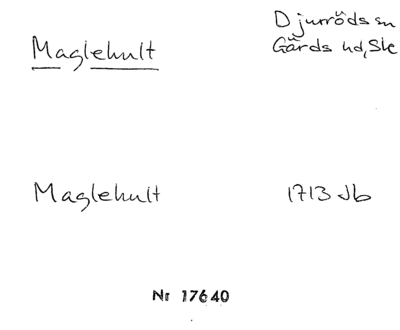 Djurröds sn
Maglehult
Gärds hd, Sk
Maglehult 1713 Jb
Nr 17640